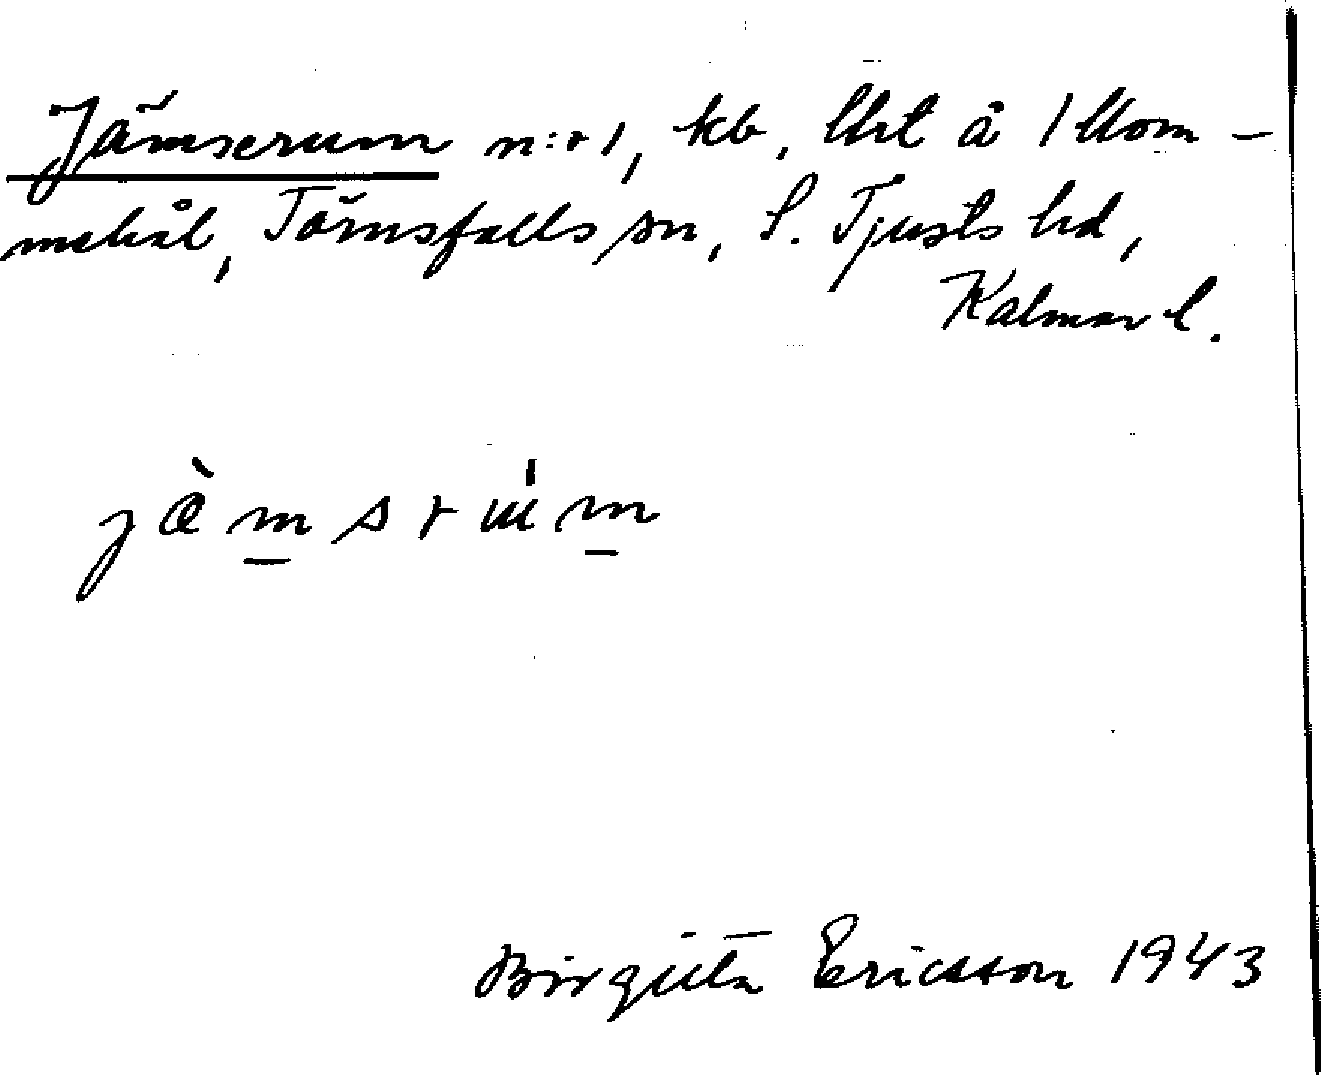 Jämserum n:r 1, kb, lht å 1 Mom-
mehål, Törnsfalls sn, S. Tjusts hd,
Kalmar l.
jæ̀m̲srúm̲
Birgitta Ericsson 1943